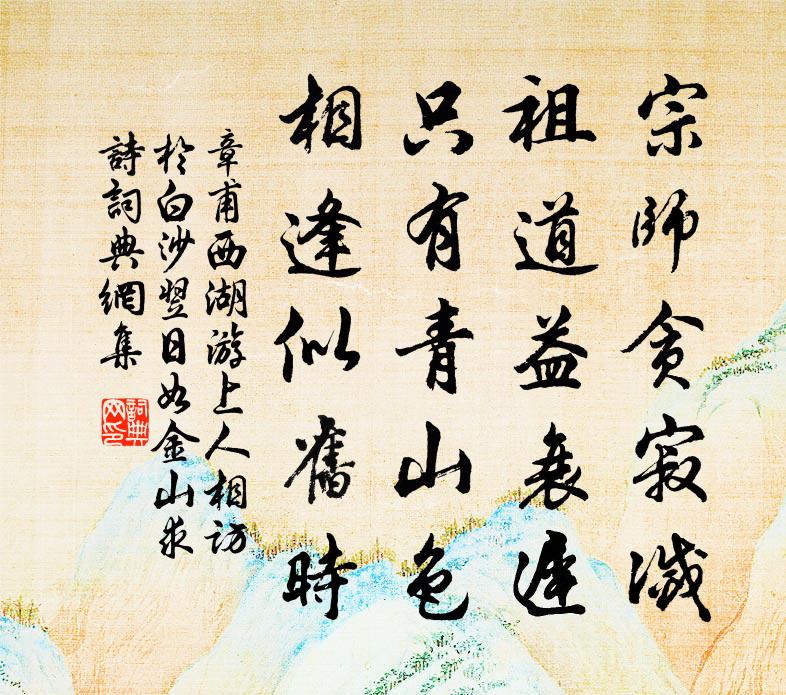 宗師貪寂滅
祖道益衰遲
只有青山色
相逢似舊時
章甫西湖游上人相訪
於白沙翌日如金山求
詩詞典網集
詞典網印